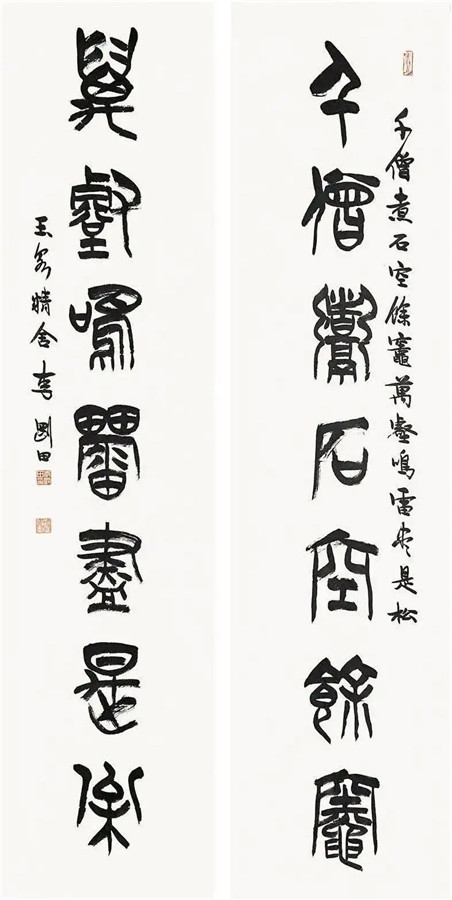 千僧煮石空餘竈萬壑鳴雷盡是松
千僧煮石空餘竈
萬壑鳴雷盡是松
舍李剛田